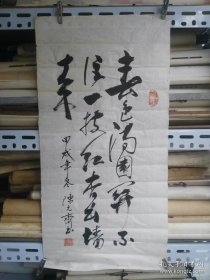 春色满園関不
住一枝红杏出墙
来
甲戌年冬